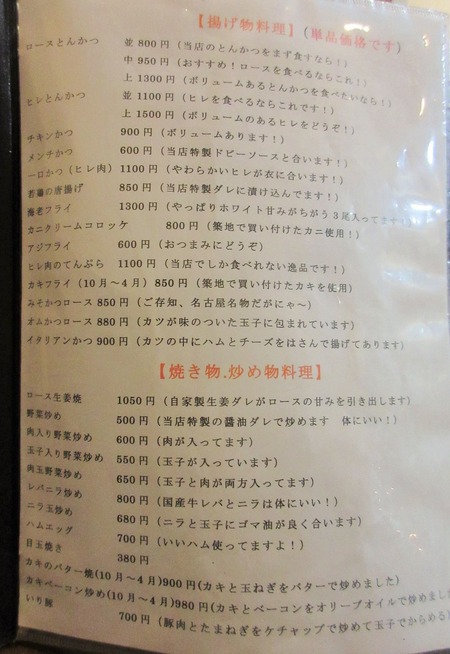 【揚げ物料理】(単品価格です)
ロースとんかつ 並 800円(当店のとんかつをまず食すなら!)
中 950円(おすすめ!ロースを食べるならこれ!)
上 1300円(ボリュームあるとんかつを食べたいなら!)
ヒレとんかつ 並 1100円(ヒレを食べるならこれです!)
上 1500円(ボリュームのあるヒレをどうぞ!)
チキンかつ 900円(ボリュームあります!)
メンチかつ 600円(当店特製ドビーソースと合います!)
一口かつ(ヒレ肉) 1100円(やわらかいヒレが衣に合います!)
若鶏の唐揚げ 850円(当店特製ダレに漬け込んでます!)
海老フライ 1300円(やっぱりホワイト甘みがちがう3尾入ってます!
カニクリームコロッケ 800円(築地で買い付けたカニ使用!)
アジフライ 600円(おつまみにどうぞ)
ヒレ肉のてんぷら 1100円(当店でしか食べれない逸品です!)
カキフライ(10月~4月)850円(築地で買い付けたカキを使用)
みそかつロース 850円(ご存知、名古屋名物だがにゃ~)
オムかつロース 880円(カツが味のついた玉子に包まれています)
イタリアンかつ 900円(カツの中にハムとチーズをはさんで揚げてあります)
【焼き物.炒め物料理】
ロース生姜焼 1050円(自家製生姜ダレがロースの甘みを引き出します)
野菜炒め 500円(当店特製の醤油ダレで炒めます 体にいい!)
肉入り野菜炒め 600円(肉が入ってます)
玉子入り野菜炒め 550円(玉子が入っています)
肉玉野菜炒め 650円(玉子と肉が両方入ってます)
レバニラ炒め 800円(国産牛レバとニラは体にいい!)
ニラ玉炒め 680円(ニラと玉子にゴマ油が良く合います)
ハムエッグ 700円(いいハム使ってますよ!)
目玉焼き 380円
カキのバター焼(10月~4月)900円(カキと玉ねぎをバターで炒めました)
カキベーコン炒め(10月~4月)980円(カキとベーコンをオリーブオイルで炒めまし
いり豚 700円(豚肉とたまねぎをケチャップで炒めて玉子でからめる)